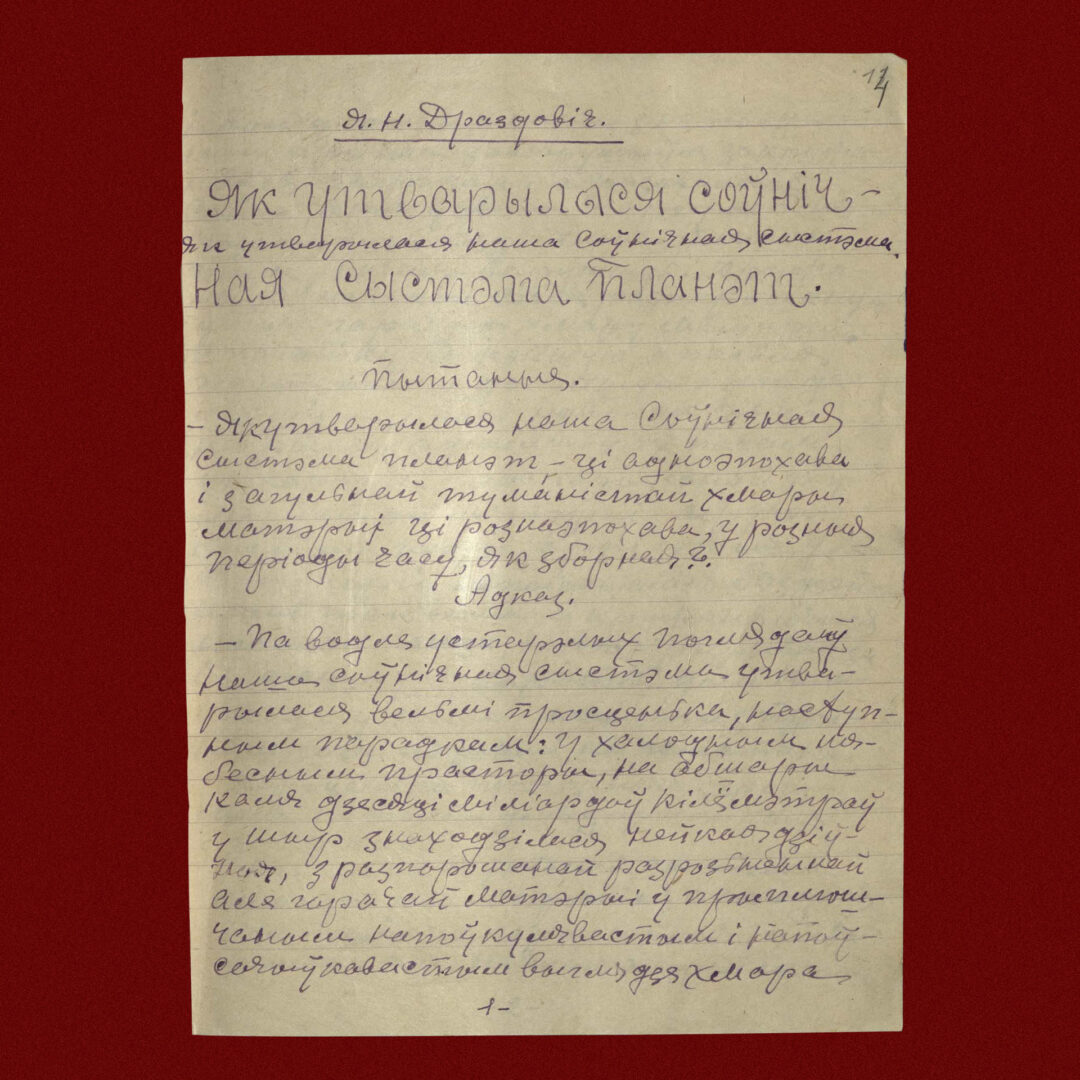 14
Я. Н. Драздовіч.
Як утварылася соўніч-
як утварылася наша Соўнічная сыстэма.
ная сыстэма планэт.
Пытаньня.
– Як утварылася наша Соўнічная
сыстэма планэт – ці аднаэпохава
і з агульнай туманістай хмары
матэрыі ці рознаэпохава, у розныя
періоды часу, як зборная?.
Адказ.
– Па водля устарэлых поглядаў
наша соўнічная сыстэма утва-
рылася вельмі просценька, наступ-
ным парадкам: у халодным ня-
бесным прасторы, на абшары
каля дзесяці міліардаў кілёмэтраў
у шыр знаходзілася нейкая дзіў-
ная, з распорошанай разрозьненай
але гарачай матэрыі у прыплюш-
чаным напоўкулявастым і напоў-
сачоўкавастым выглядзе хмара
1-